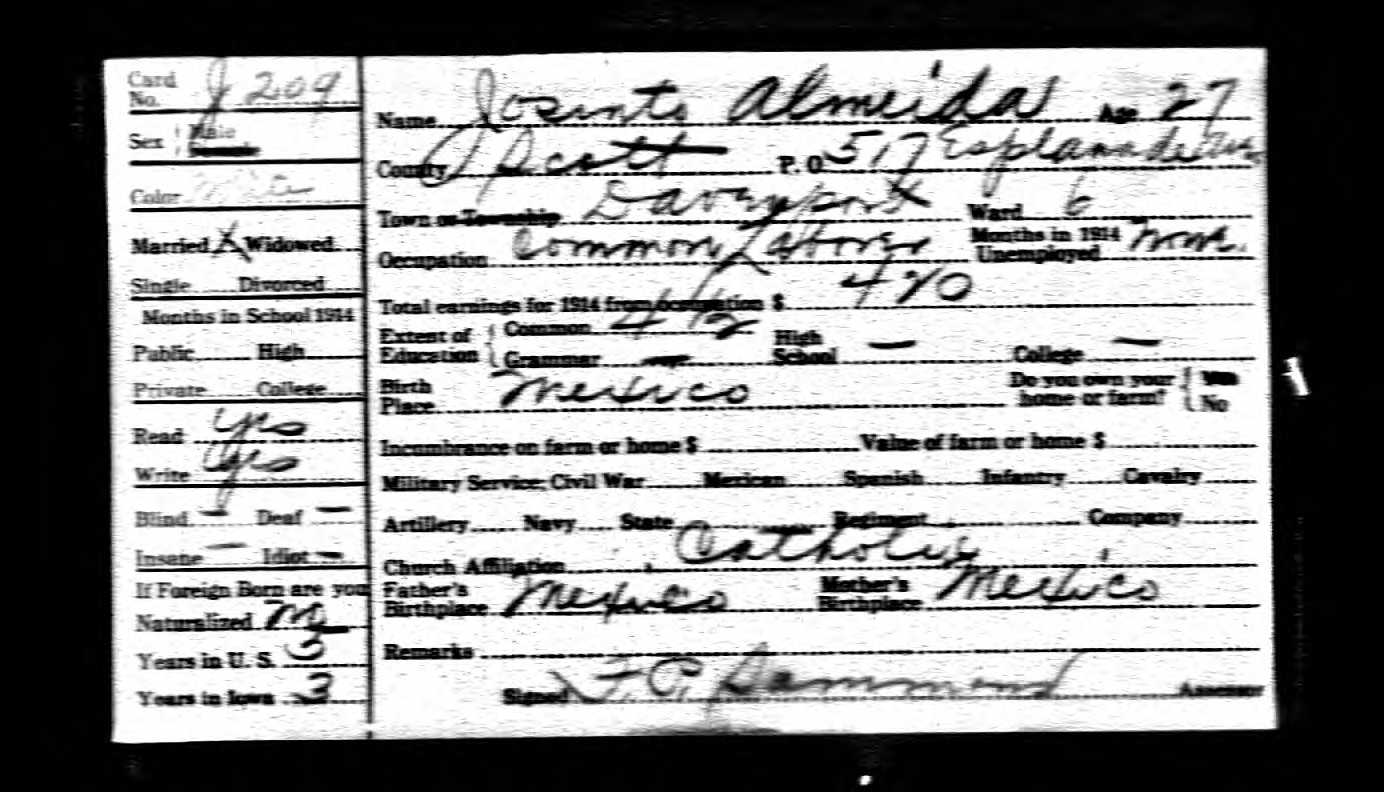 Card No. J 209
Sex Male
Color
Married X Widowed
Single Divorced
Months in School 1914
Public High
Private College
Read Yes
Write Yes
Blind — Deaf —
Insane — Idiot —
If Foreign Born are you
Naturalized No
Years in U. S. 5
Years in Iowa 3
Name Josinto Almeida Age 27
County Scott P. O. 517 Esplanade Av.
Town or Township Davenport Ward 6
Occupation Common Laborer Months in 1914 Unemployed None.
Total earnings for 1914 from occupation $ 420
Extent of Education Common 4 1/2 High School — College —
Grammar —
Birth Place Mexico Do you own your home or farm? Yes No
Incumbrance on farm or home $ Value of farm or home $
Military Service; Civil War Mexican Spanish Infantry Cavalry
Artillery Navy State Regiment Company
Church Affiliation Catholic
Father's Birthplace Mexico Mother's Birthplace Mexico
Remarks
Signed F. C. Dammond Assessor